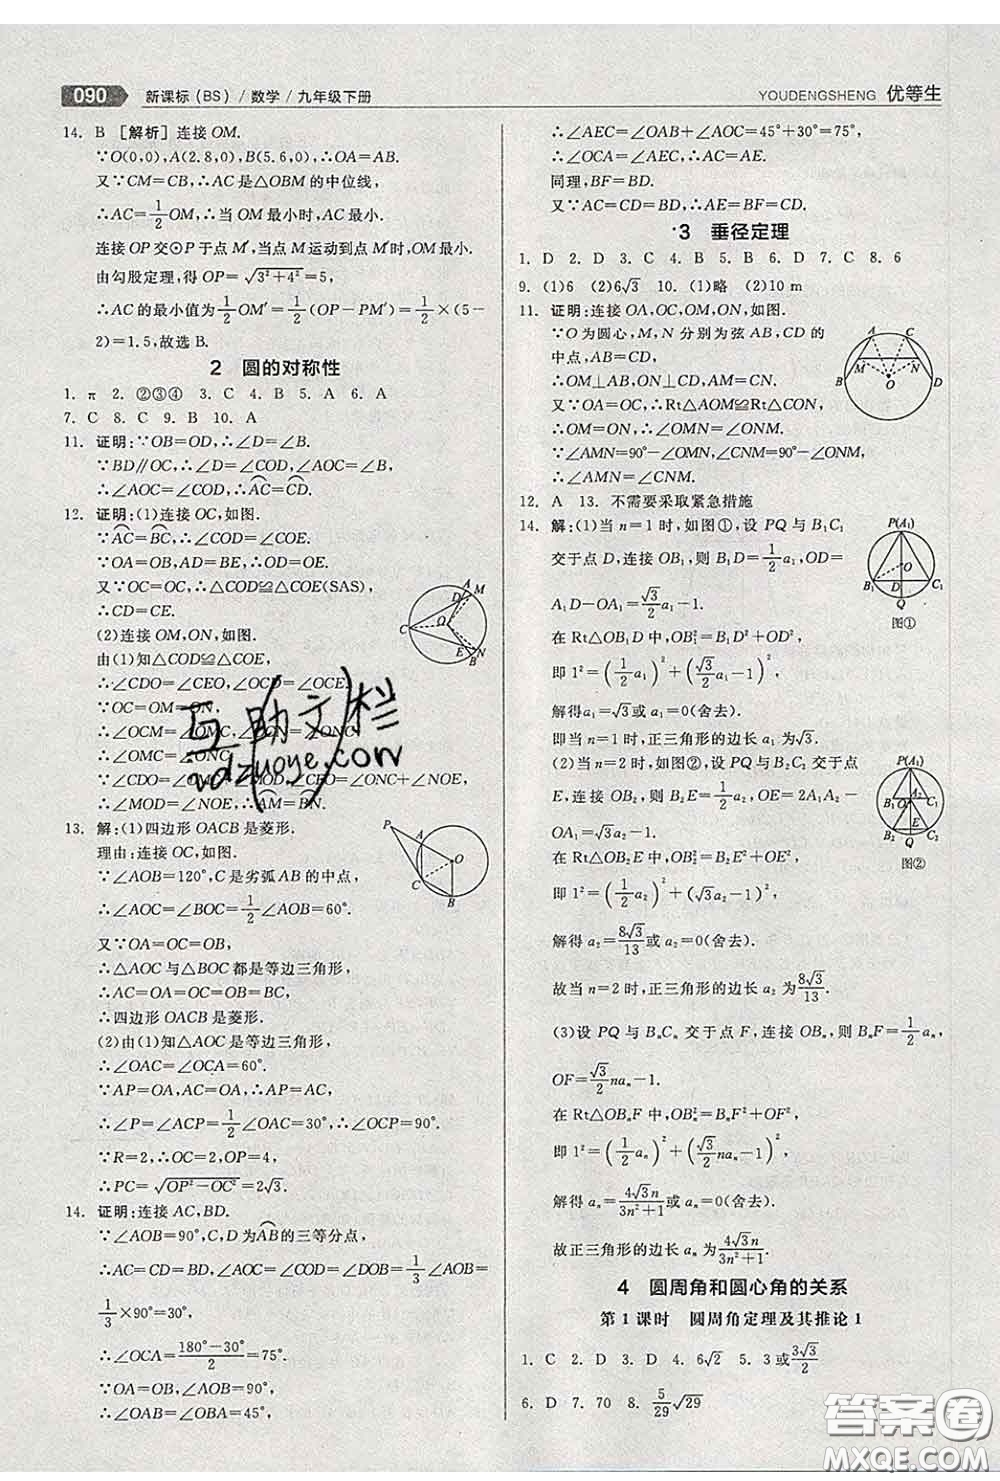 090 新课标(BS)/数学/九年级下册
YOUDENGSHENG 优等生
14. B [解析]连接OM.
∵O(0,0),A(2.8,0),B(5.6,0),∴OA=AB.
又∵CM=CB,∴AC是△OBM的中位线,
∴AC=1/2OM,∴当OM最小时,AC最小.
连接OP交⊙P于点M′,当点M运动到点M′时,OM最小.
由勾股定理,得OP=√(3²+4²)=5,
∴AC的最小值为1/2OM′=1/2(OP-PM′)=1/2×(5-
2)=1.5,故选B.
2 圆的对称性
1. π 2. ②③④ 3. C 4. B 5. A 6. A
7. C 8. C 9. B 10. A
11. 证明:∵OB=OD,∴∠D=∠B.
∵BD∥OC,∴∠D=∠COD,∠AOC=∠B,
∴∠AOC=∠COD,∴AC=CD.
12. 证明:(1)连接OC,如图.
∵AC=BC,∴∠COD=∠COE.
∵OA=OB,AD=BE,∴OD=OE.
又∵OC=OC,∴△COD≌△COE(SAS),
∴CD=CE.
(2)连接OM,ON,如图.
由(1)知△COD≌△COE,
∴∠CDO=∠CEO,∠OCD=∠OCE.
∵OC=OM=ON,
∴∠OCM=∠OMC,∠OCN=∠ONC,
∴∠OMC=∠ONC.
∵∠CDO=∠MOD+∠OMC,∠CEO=∠ONC+∠NOE,
∴∠MOD=∠NOE,∴AM=BN.
A M D C O E N B
13. 解:(1)四边形OACB是菱形.
理由:连接OC,如图.
∵∠AOB=120°,C是劣弧AB的中点,
∴∠AOC=∠BOC=1/2∠AOB=60°.
又∵OA=OC=OB,
∴△AOC与△BOC都是等边三角形,
∴OA=AC=OC=OB=BC,
∴四边形OACB是菱形.
(2)由(1)知△AOC是等边三角形,
∴∠OAC=∠OCA=60°.
∵AP=OA,OA=AC,∴AP=AC,
∴∠P=∠ACP=1/2∠OAC=30°,∴∠OCP=90°.
∵R=2,∴OC=2,OP=4,
∴PC=√(OP²-OC²)=2√3.
P A O C B
14. 证明:连接AC,BD.
∵∠AOB=90°,C,D为AB的三等分点,
∴AC=CD=BD,∠AOC=∠COD=1/3∠AOB=
1/3×90°=30°,
∴∠OCA=(180°-30°)/2=75°.
∵OA=OB,∠AOB=90°,
∴∠OAB=∠OBA=45°,
∴∠AEC=∠OAB+∠AOC=45°+30°=75°,
∴∠OCA=∠AEC,∴AC=AE.
同理,BF=BD.
又∵AC=CD=BD,∴AE=BF=CD.
*3 垂径定理
1. D 2. D 3. C 4. B 5. B 6. D 7. C 8. 6
9. (1)6 (2)6√3 10. (1)略 (2)10 m
11. 证明:连接OA,OC,OM,ON,如图.
∵O为圆心,M,N分别为弦AB,CD的
中点,
∴OM⊥AB,ON⊥CD.
又∵AB=CD,∴AM=CN.
又∵OA=OC,∴Rt△AOM≌Rt△CON,
∴OM=ON,∴∠OMN=∠ONM.
∵∠AMN=90°-∠OMN,∠CNM=90°-∠ONM,
∴∠AMN=∠CNM.
A C M N O B D
12. A 13. 不需要采取紧急措施
14. 解:(1)当n=1时,如图①,设PQ与B₁C₁
交于点D,连接OB₁,则B₁D=1/2a₁,OD=
A₁D-OA₁=√3/2a₁-1.
在Rt△OB₁D中,OB₁²=B₁D²+OD²,
即1²=(1/2a₁)²+(√3/2a₁-1)²,
解得a₁=√3或a₁=0(舍去).
即当n=1时,正三角形的边长a₁为√3.
P(A₁) O B₁ D C₁ Q 图①
(2)当n=2时,如图②,设PQ与B₂C₂交于点
E,连接OB₂,则B₂E=1/2a₂,OE=2A₁A₂-
OA₁=√3a₂-1.
在Rt△OB₂E中,OB₂²=B₂E²+OE²,
即1²=(1/2a₂)²+(√3a₂-1)²,
解得a₂=8√3/13或a₂=0(舍去).
故当n=2时,正三角形的边长a₂为8√3/13.
P(A₁) A₂ B₁ C₁ E B₂ C₂ Q 图②
(3)设PQ与BₙCₙ交于点F,连接OBₙ,则BₙF=1/2aₙ,
OF=√3/2naₙ-1.
在Rt△OBₙF中,OBₙ²=BₙF²+OF²,
即1²=(1/2aₙ)²+(√3/2naₙ-1)²,
解得aₙ=4√3n/(3n²+1)或aₙ=0(舍去).
故正三角形的边长aₙ为4√3n/(3n²+1).
4 圆周角和圆心角的关系
第1课时 圆周角定理及其推论1
1. C 2. D 3. D 4. 6√2 5. 3或3√3/2
6. D 7. 70 8. 5/29√29
互助文栏
答案圈
MXQE.COM